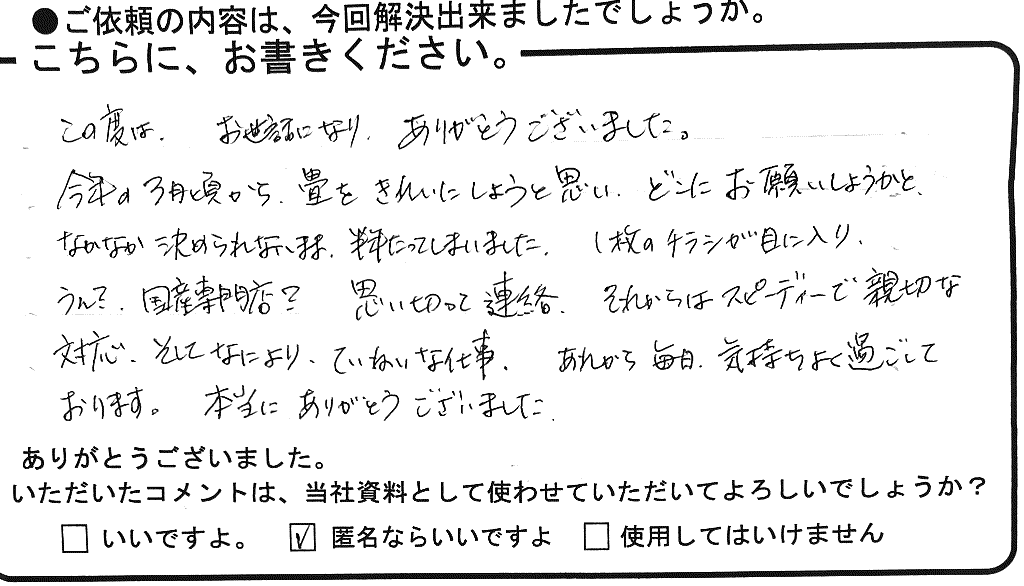 ●ご依頼の内容は、今回解決出来ましたでしょうか。
こちらに、お書きください。
この度は、 お世話になり、ありがとうございました。
今年の3月頃から、畳をきれいにしようと思い、どこにお願いしようかと、
なかなか決められないまま、半年たってしまいました。 1枚のチラシが目に入り、
うん?、国産専門店? 思い切って連絡、それからはスピーディーで親切な
対応、そしてなにより、ていねいな仕事。 あれから毎日、気持ちよく過ごして
おります。 本当にありがとうございました。
ありがとうございました。
いただいたコメントは、当社資料として使わせていただいてよろしいでしょうか?
□ いいですよ。 ☑ 匿名ならいいですよ □ 使用してはいけません